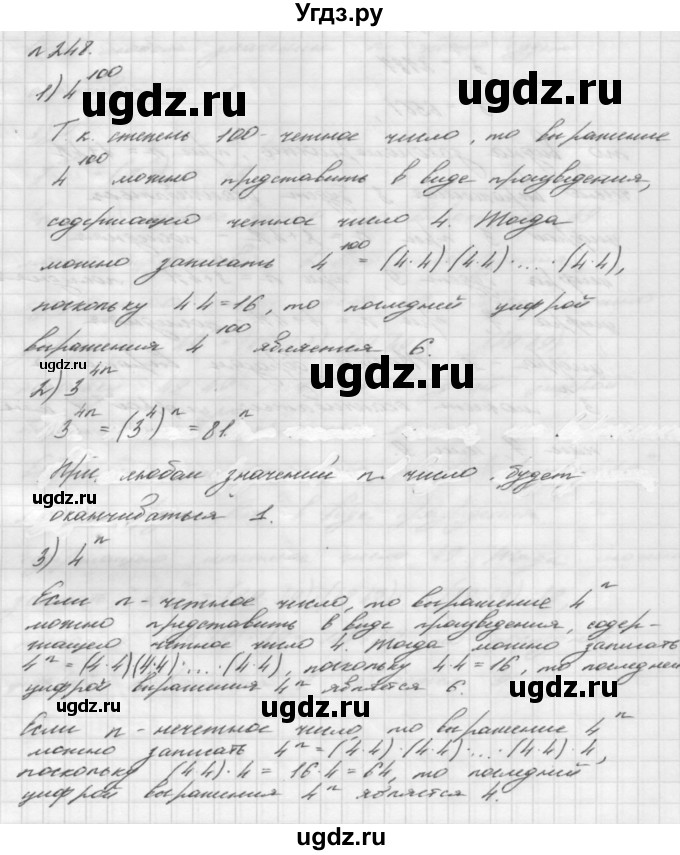 Угдз.ру
№ 248.
1) 4^100
Т.к. степень 100- четное число, то выражение
4^100 можно представить в виде произведения,
содержащего четное число 4. Тогда
можно записать 4^100 = (4·4)(4·4)·...·(4·4),
поскольку 4·4=16, то последней цифрой
выражения 4^100 является 6.
2) 3^4n
3^4n = (3^4)^n = 81^n
При любом значений n число будет
оканчиваться 1.
3) 4^n
Если n - четное число, то выражение 4^n
можно представить в виде произведения, содер-
жащего четное число 4. Тогда можно записать
4^n = (4·4)(4·4)·...·(4·4), поскольку 4·4=16, то последней
цифрой выражения 4^n являтся 6.
Если n - нечетное число, то выражение 4^n
можно записать 4^n = (4·4)·(4·4)·...·(4·4)·4,
поскольку (4·4)·4 = 16·4=64, то последний
цифрой выражения 4^n является 4.
ugdz.ru
ugdz.ru
ugdz.ru
ugdz.ru
ugdz.ru
ugdz.ru
ugdz.ru
ugdz.ru
ugdz.ru